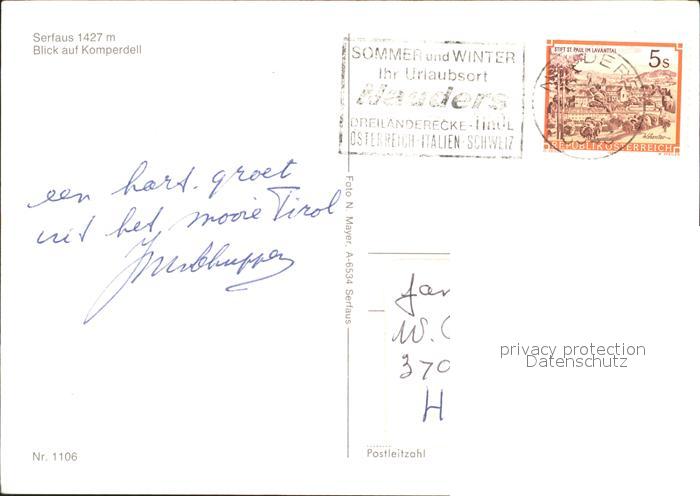 Serfaus 1427 m
Blick auf Komperdell
SOMMER und WINTER
Ihr Urlaubsort
Nauders
DREILÄNDERECKE-TIROL
ÖSTERREICH-ITALIEN-SCHWEIZ
STIFT ST. PAUL IM LAVANTTAL
5s
REPUBLIK ÖSTERREICH
een hart. groet
uit het mooie Tirol
Foto N. Mayer, A-6534 Serfaus
W.
370
H
privacy protection
Datenschutz
Postleitzahl
Nr. 1106